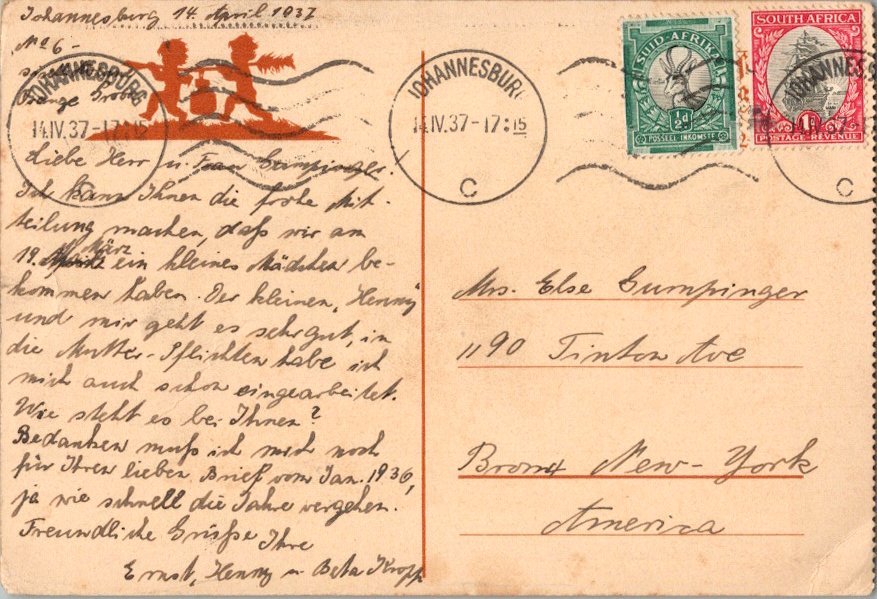 Johannesburg 14. April 1937
No 6 -
Grove
Liebe Herr u. Frau Gumpinger.
Ich kann Ihnen die frohe Mit-
teilung machen, daß wir am
19. März ein kleines Mädchen be-
kommen haben. Der kleinen "Henny"
und mir geht es sehr gut, in
die Mutter-Pflichten habe ich
mich auch schon eingearbeitet.
Wie steht es bei Ihnen?
Bedanken muß ich mich noch
für Ihren lieben Brief vom Jan. 1936,
ja wie schnell die Jahre vergehen.
Freundliche Grüße Ihre
Ernst, Henny u Beta Kropp
JOHANNESBURG
14.IV.37-17:15
C
JOHANNESBURG
14.IV.37-17:15
C
SUID-AFRIKA
½d
POSSEEL-INKOMSTE
SOUTH AFRICA
1d
POSTAGE-REVENUE
JOHANNES
C
Mrs. Else Gumpinger
1190 Tinton Ave
Bronx New-York
America